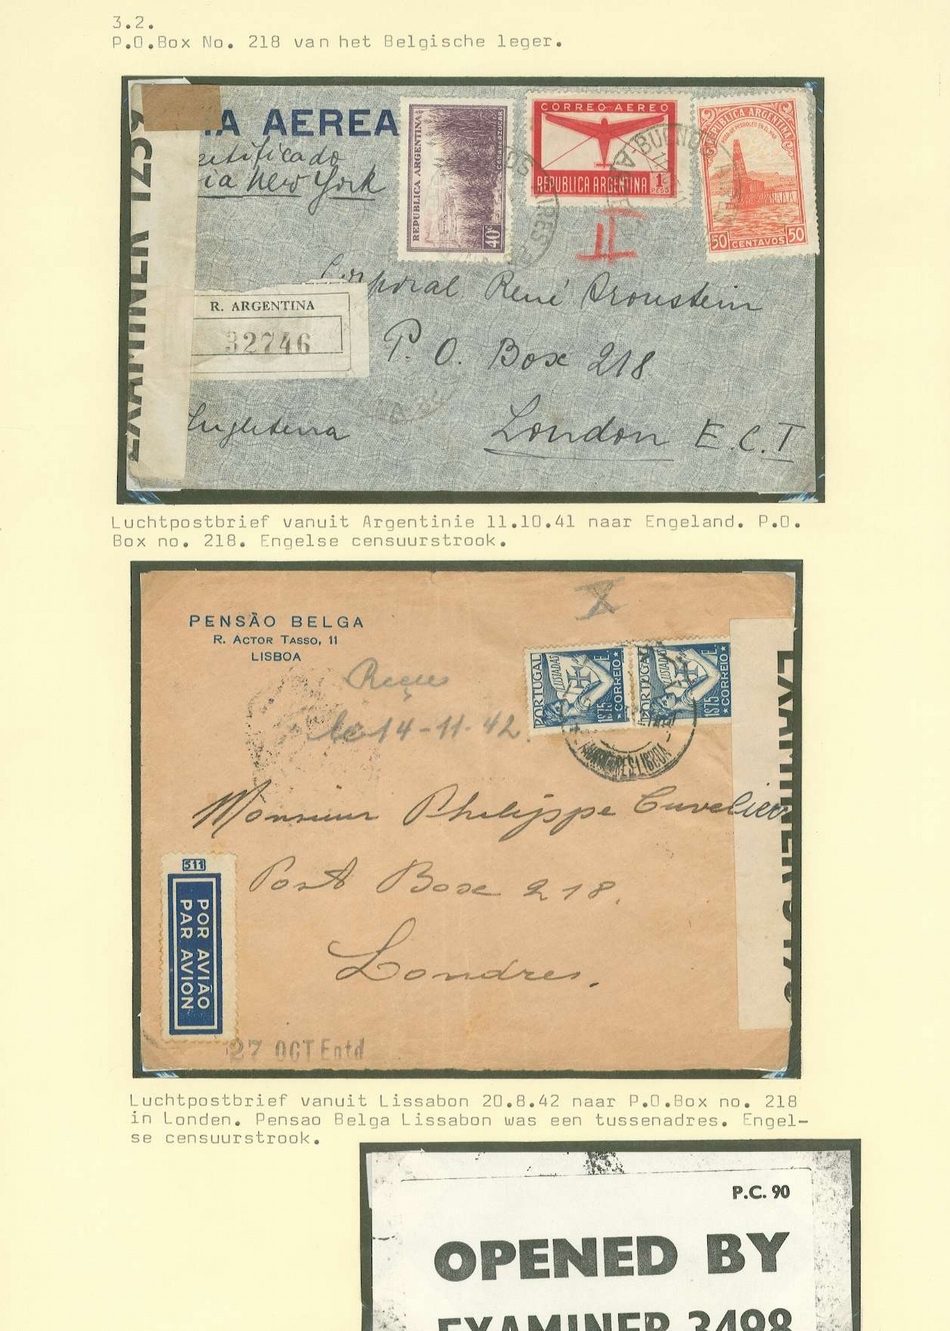 3.2.
P.O.Box No. 218 van het Belgische leger.
IA AEREA
ertificado
ia New York
REPUBLICA ARGENTINA
40
CORREO AEREO
REPUBLICA ARGENTINA
1
REPUBLICA ARGENTINA
50 CENTAVOS 50
II
EXAMINER 1259
Corporal René Aronstein
R. ARGENTINA
32746
P. O. Box 218
Inglaterra
London E.C.1
Luchtpostbrief vanuit Argentinie 11.10.41 naar Engeland. P.O.
Box no. 218. Engelse censuurstrook.
X
PENSÃO BELGA
R. ACTOR TASSO, 11
LISBOA
PORTUGAL
LUSIADAS
1$75
CORREIO
PORTUGAL
LUSIADAS
1$75
CORREIO
Reçu
le 14-11-42.
LISBOA
EXAMINER
Monsieur Philippe Cuvelier
Post Box 218.
Londres.
511
POR AVIÃO
PAR AVION
27 OCT Entd
Luchtpostbrief vanuit Lissabon 20.8.42 naar P.O.Box no. 218
in Londen. Pensao Belga Lissabon was een tussenadres. Engel-
se censuurstrook.
P.C. 90
OPENED BY
EXAMINER 3498